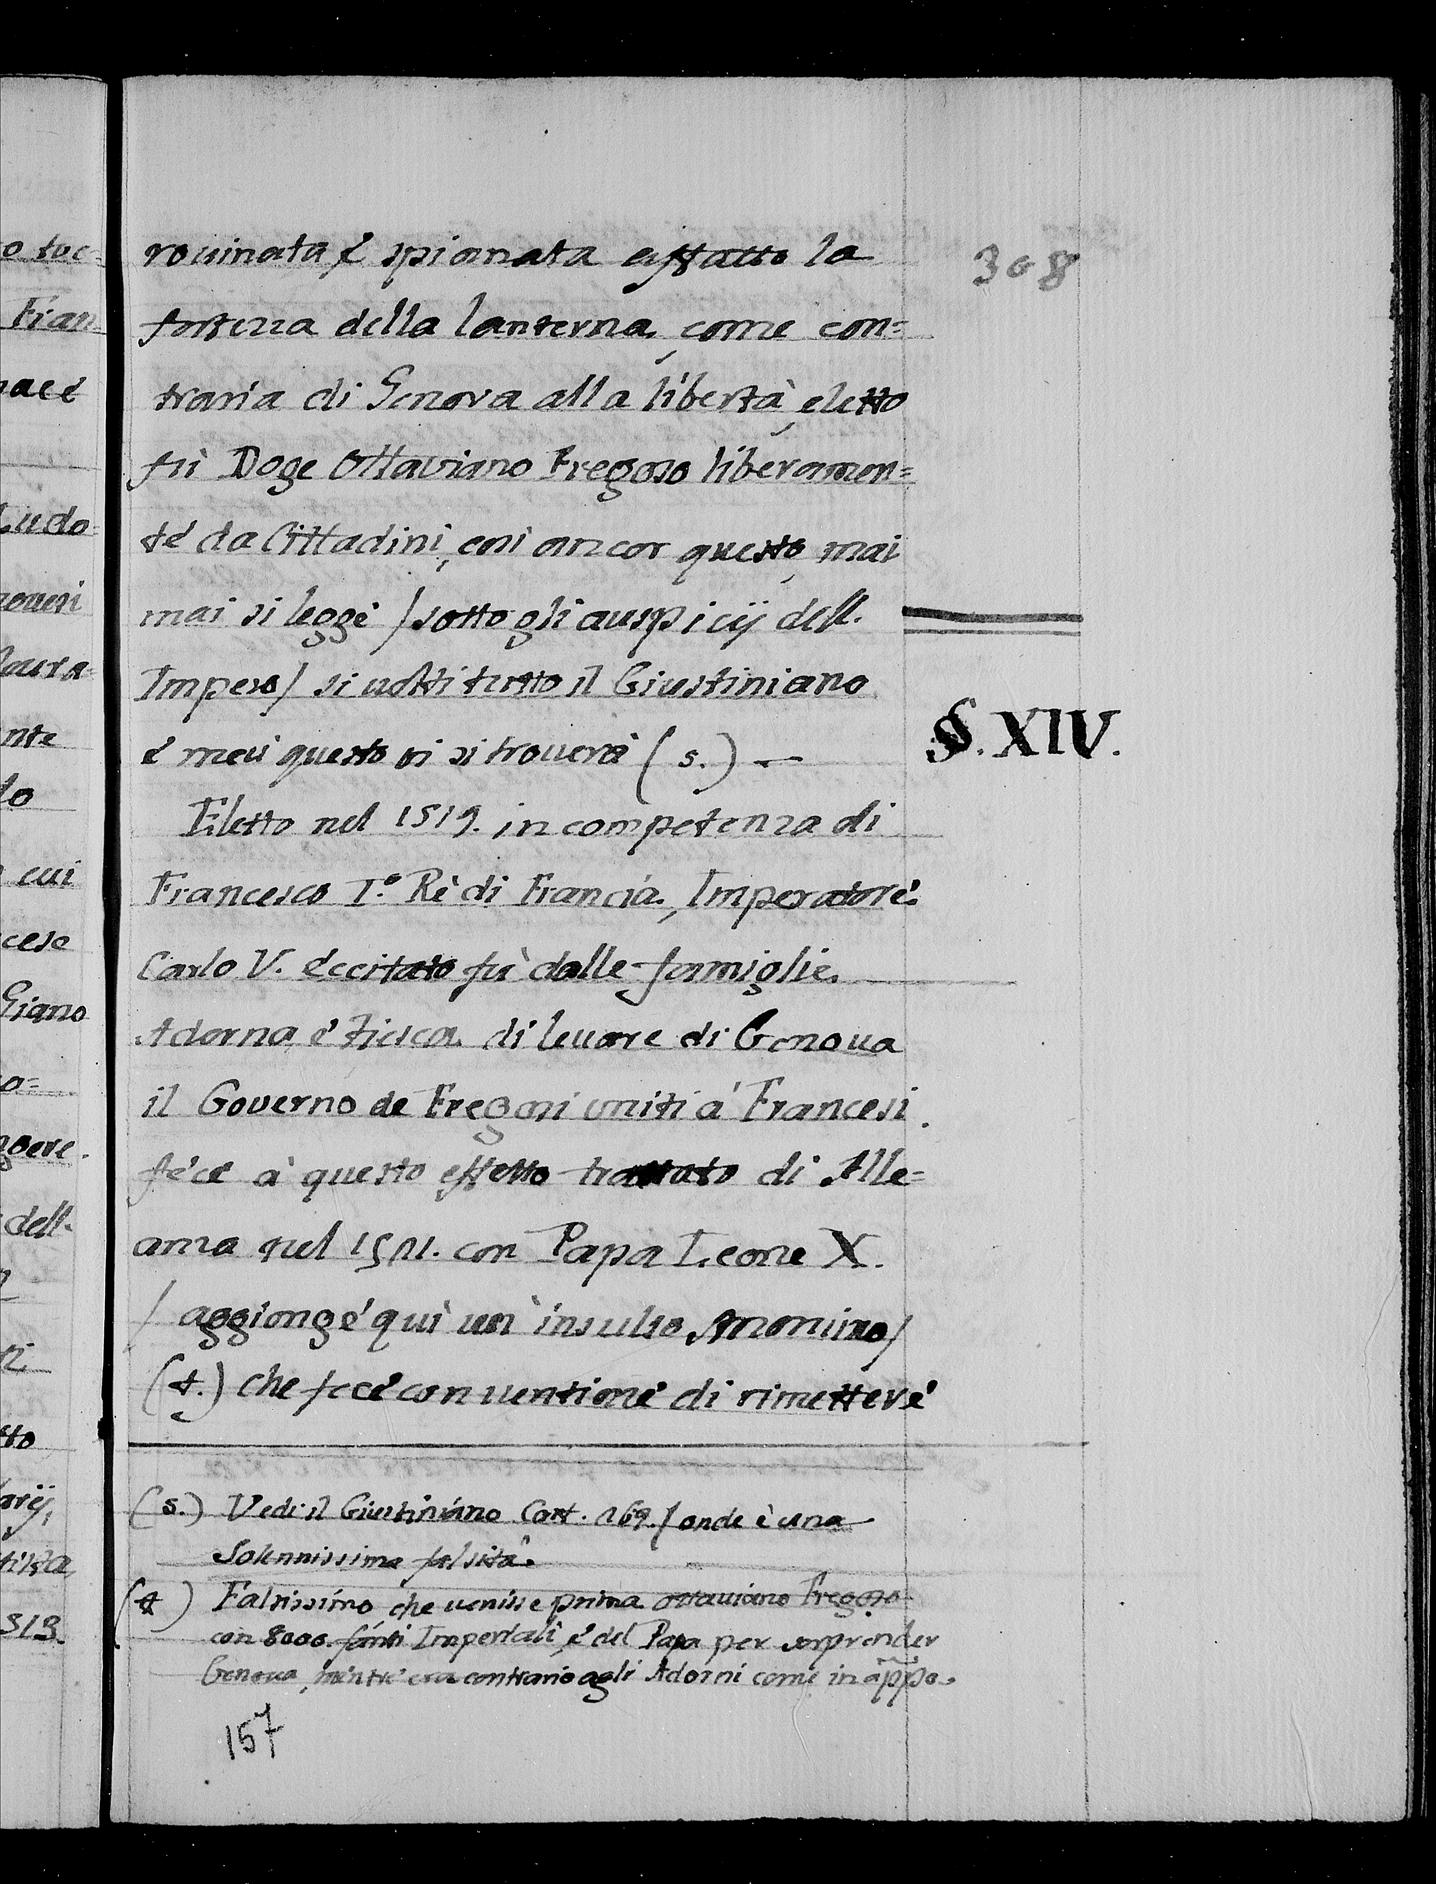 308
rouinata é spianata affatto la
fortezza della lanterna, come con=
traria di Genova alla libertà, eletto
fù Doge Ottaviano Fregoso liberamen=
té da Cittadini, così ancor questo, mai
mai si leggé /sotto gli auspicij dell.
Impero/ si uolti tutto il Giustiniano
é mai questo vi si trouerà (s.) —
§. XIV.
Eletto nel 1519. in competenza di
Francesco I.º Rè di Francia, Imperatoré
Carlo V. éccitato fù dalle famiglie
Adorna, é Fiesca di leuare di Genoua
il Governo de Fregosi uniti à Francesi.
féce à questo effetto trattato di Alle=
anza nel 1521. con Papa Leone X.
/ aggiongé quì un' insulso Anonimo/
(t.) che fecé conuentioné di rimetteré
(s.) Vedi il Giustiniano Cart. 269./ onde è una
Solennissima falsità.
(t) Falsissimo, che uenisse prima ottauiano Fregoso
con 8000. fanti Imperiali, é del Papa per sorprender
Genoua, mentré era contrario agli Adorni comé in appo.
157
o toc=
Fran
Ludo
nte
lo
cui
cese
Giano
o=
dell.
tto